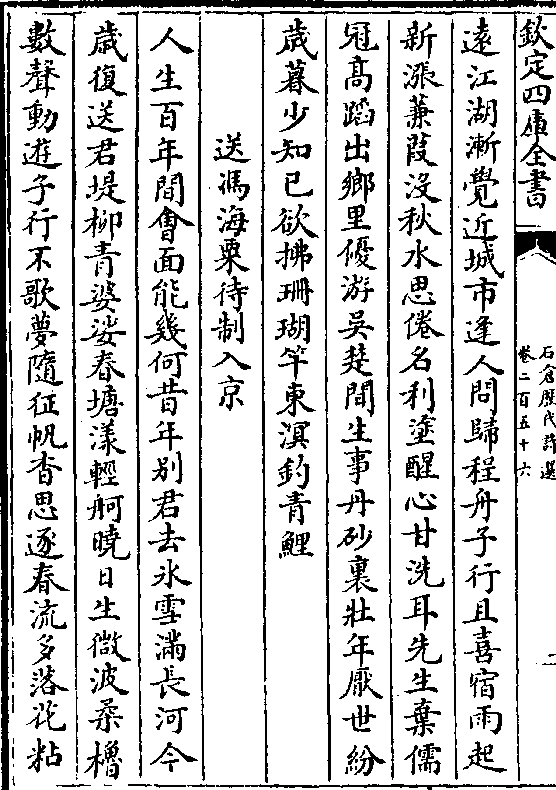 欽定四庫全書
石倉歷代詩選
卷二百五十六
二
遠江湖漸覺近城市逢人問歸程舟子行且喜宿雨起
新漲蒹葭沒秋水思倦名利塗醒心甘洗耳先生棄儒
冠高蹈出鄉里優游吳楚間生事丹砂裏壯年厭世紛
歲暮少知已欲拂珊瑚竿東溟釣青鯉
送馮海粟待制入京
人生百年間會面能幾何昔年別君去氷雪滿長河今
歲復送君堤柳青婆娑春塘漾輕舸曉日生微波柔櫓
數聲動遊子行不歌夢隨征帆杳思逐春流多落花粘